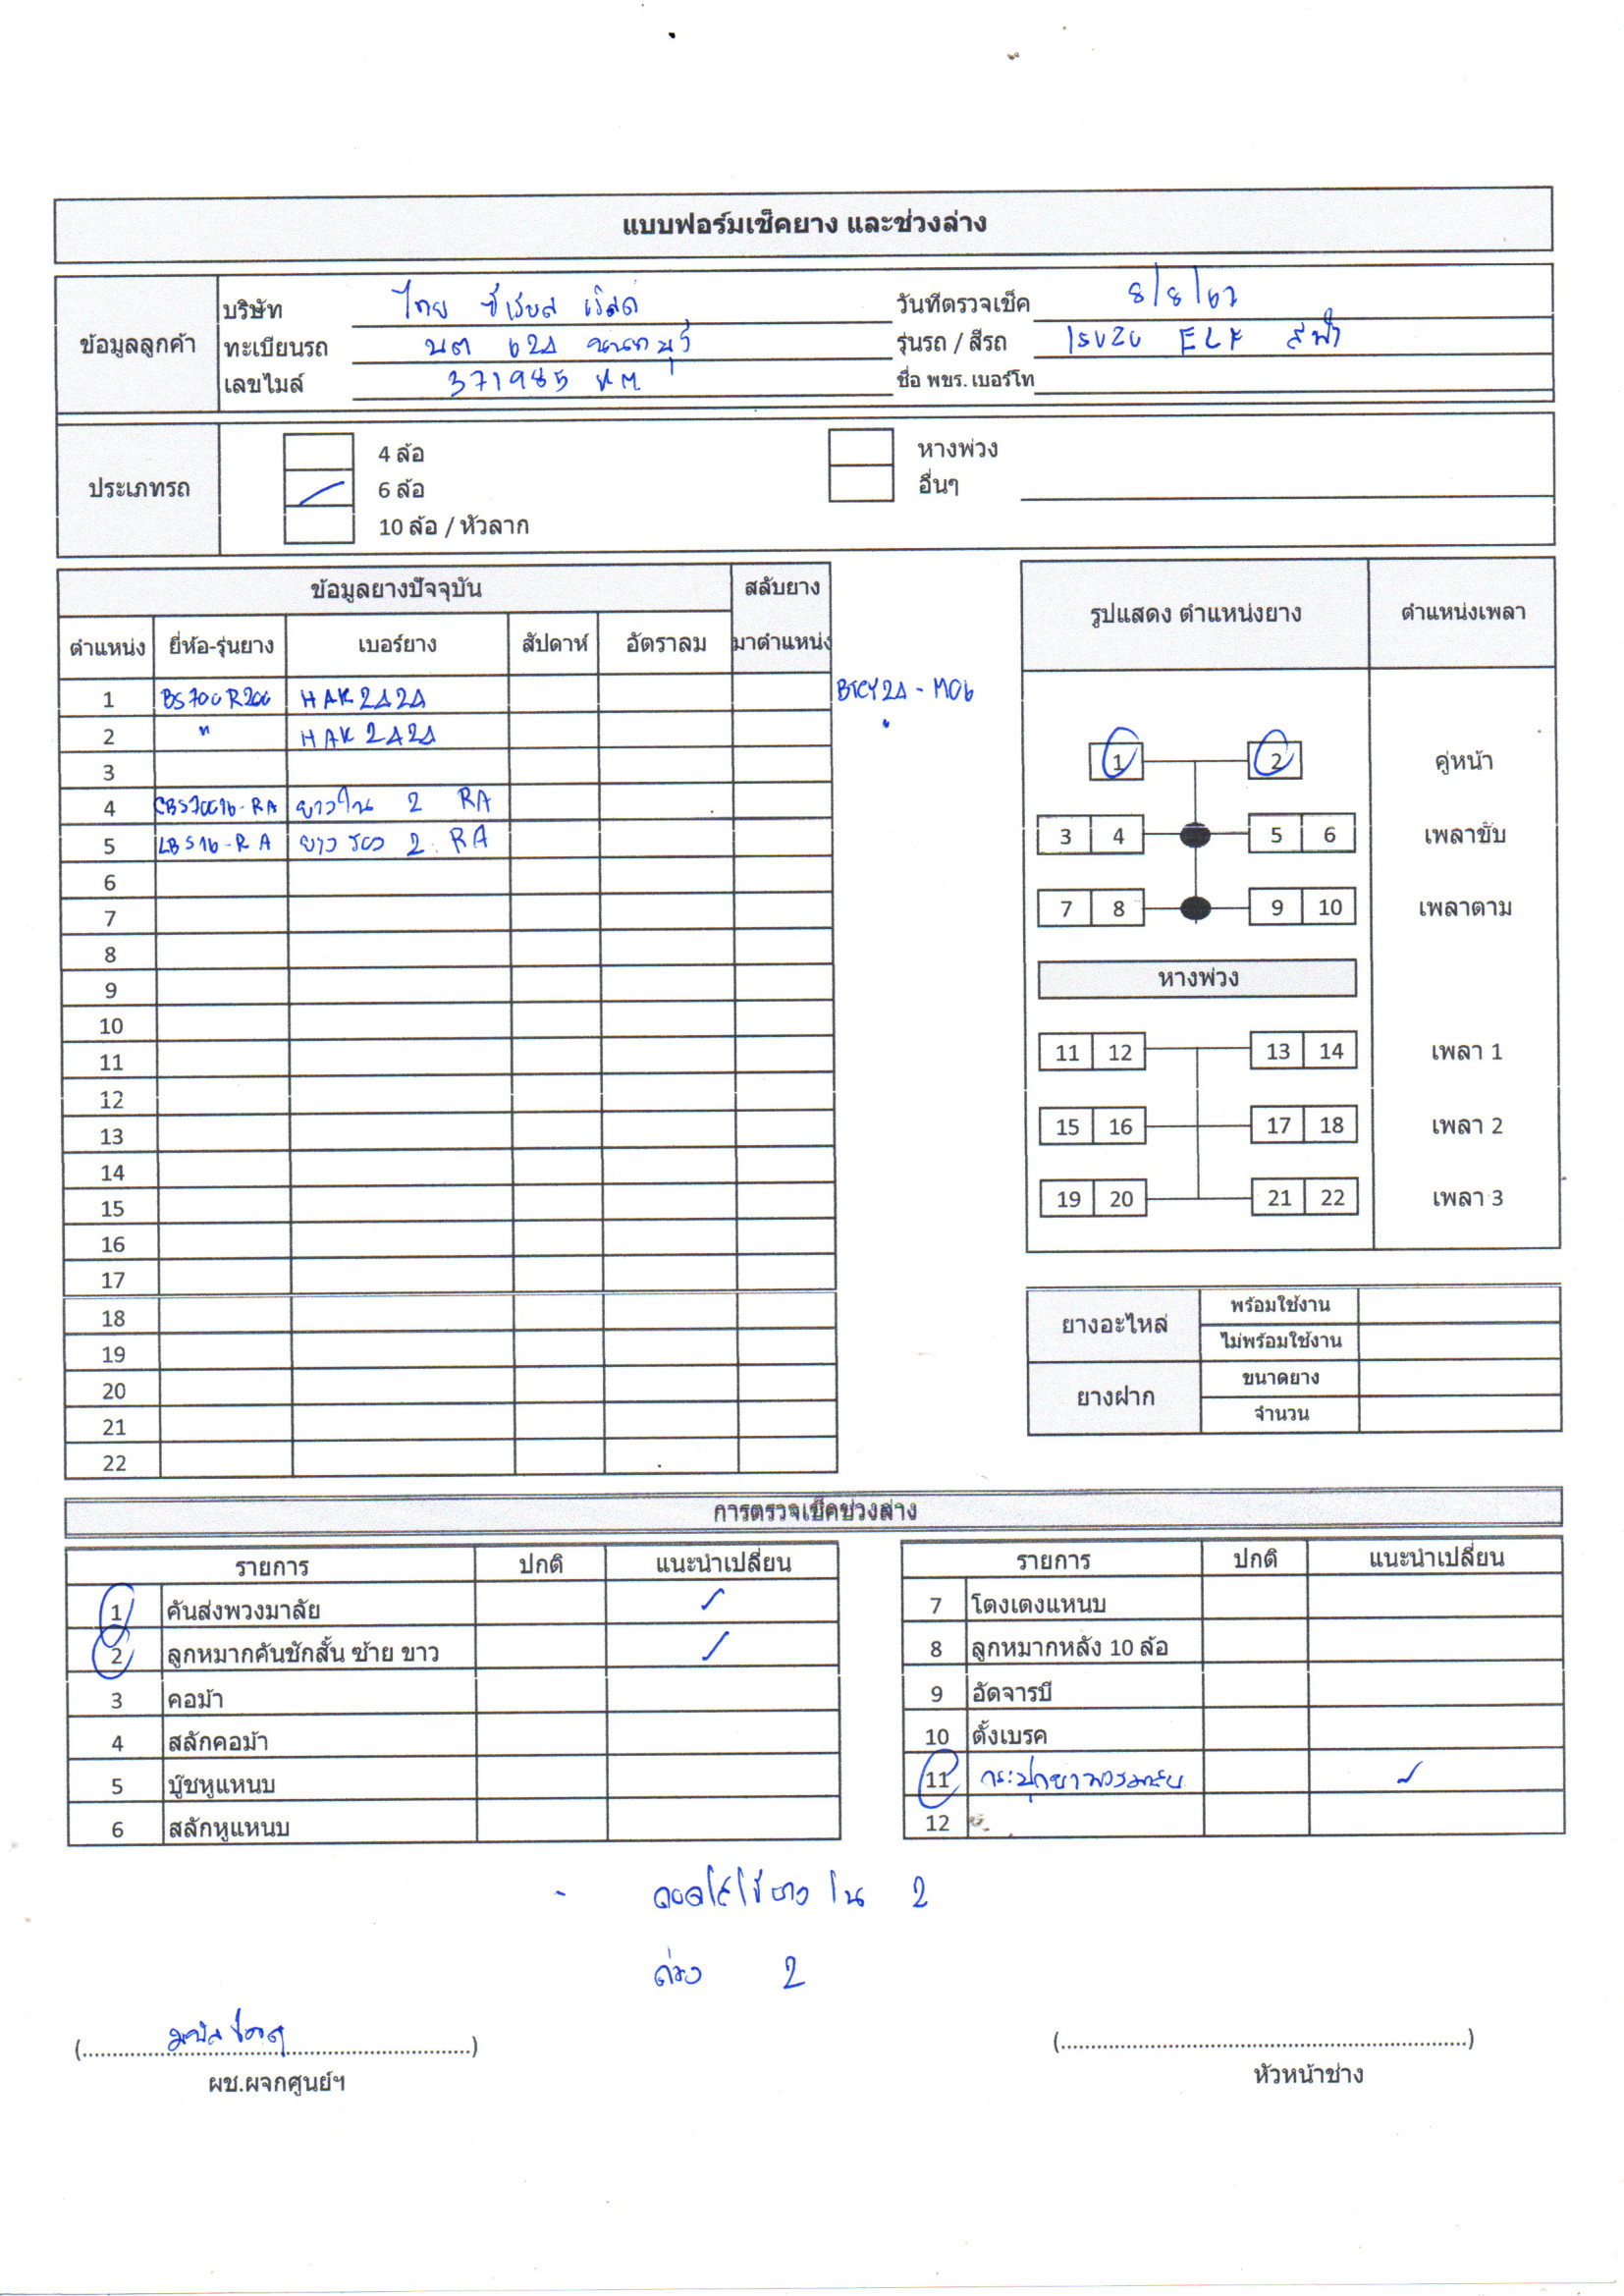 แบบฟอร์มเช็คยาง และช่วงล่าง
ข้อมูลลูกค้า
บริษัท ไทย ซีเรียล เวิลด์
วันที่ตรวจเช็ค 8/8/67
ทะเบียนรถ นต 624 นนทบุรี
รุ่นรถ / สีรถ ISUZU ELF สีฟ้า
เลขไมล์ 371985 KM
ชื่อ พขร. เบอร์โท
ประเภทรถ
4 ล้อ
หางพ่วง
6 ล้อ
อื่นๆ
10 ล้อ / หัวลาก
ข้อมูลยางปัจจุบัน สลับยาง
ตำแหน่ง ยี่ห้อ-รุ่นยาง เบอร์ยาง สัปดาห์ อัตราลม มาตำแหน่ง
1 BS700R200 HAK2424 BTCY24-M06
2 " HAK2424 "
3
4 CBS70016-RA ยางใน 2 RA
5 LBS16-RA ยางรอง 2 RA
6
7
8
9
10
11
12
13
14
15
16
17
18
19
20
21
22
รูปแสดง ตำแหน่งยาง ตำแหน่งเพลา
1 2 คู่หน้า
3 4 5 6 เพลาขับ
7 8 9 10 เพลาตาม
หางพ่วง
11 12 13 14 เพลา 1
15 16 17 18 เพลา 2
19 20 21 22 เพลา 3
ยางอะไหล่ พร้อมใช้งาน
ไม่พร้อมใช้งาน
ยางฝาก ขนาดยาง
จำนวน
การตรวจเช็คช่วงล่าง
รายการ ปกติ แนะนำเปลี่ยน
1 คันส่งพวงมาลัย ✓
2 ลูกหมากคันชักสั้น ซ้าย ขาว ✓
3 คอม้า
4 สลักคอม้า
5 บู๊ชหูแหนบ
6 สลักหูแหนบ
รายการ ปกติ แนะนำเปลี่ยน
7 โตงเตงแหนบ
8 ลูกหมากหลัง 10 ล้อ
9 อัดจารบี
10 ตั้งเบรค
11 กระปุกยาพวงมาลัย ✓
12
- ยางใน 2
2
(..........)
ผช.ผจกศูนย์ฯ
(..........)
หัวหน้าช่าง